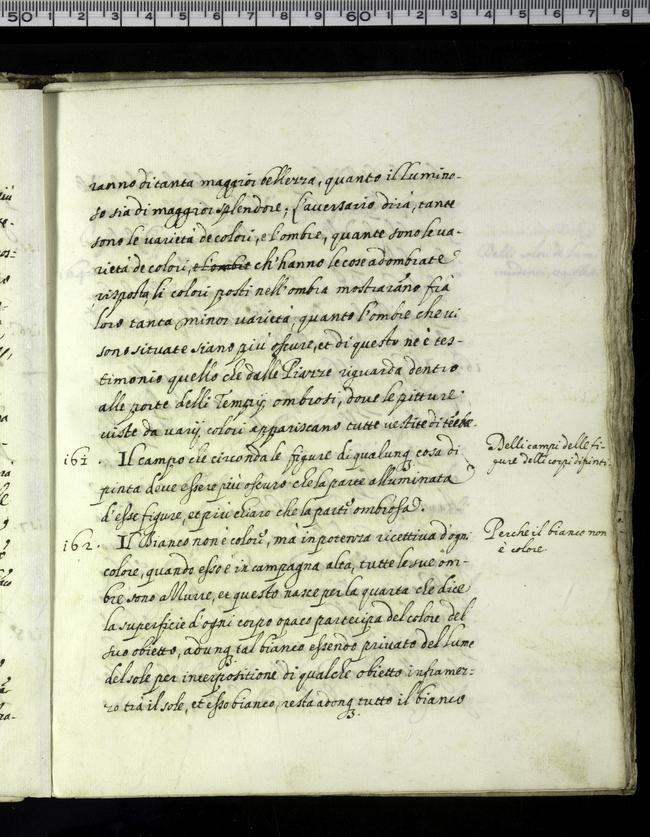 ranno di tanta maggior bellezza, quanto il lumino-
so sia di maggior splendore; l'aversario dirà, tante
sono le varietà de colori, e l'ombre, quante sono le va-
rietà de colori, e l'ombre ch'hanno le cose adombrate
risposta, li colori posti nell'ombra mostrarano fra
loro tanta minor varietà, quanto l'ombre che vi
sono situate siano più oscure, et di questo ne è tes-
timonio quello che dalle Piazze riguarda dentro
alle porte delli Tempij ombrosi, dove le pitture
viste da varij colori appariscano tutte vestite di
161. Il campo che circonda le figure di qualunq cosa di
pinta deve essere più oscuro che la parte alluminata
d'esse figure, et più chiaro che la parte ombrosa.
Delli campi delle fi-
gure delli corpi dipinti.
162. Il Bianco non è colore, mà in potenza ricettiva d'ogni
colore, quando esso è in campagna alta, tutte le sue om-
bre sono azzurre, et questo nasce per la quarta che dice
la superficie d'ogni corpo opaco partecipa del colore del
suo obietto, adunq tal bianco essendo privato del lume
del sole per interpositione di qualche obietto inframez-
zo trà il sole, et esso bianco, resta adonq tutto il bianco
Perche il bianco non
è colore